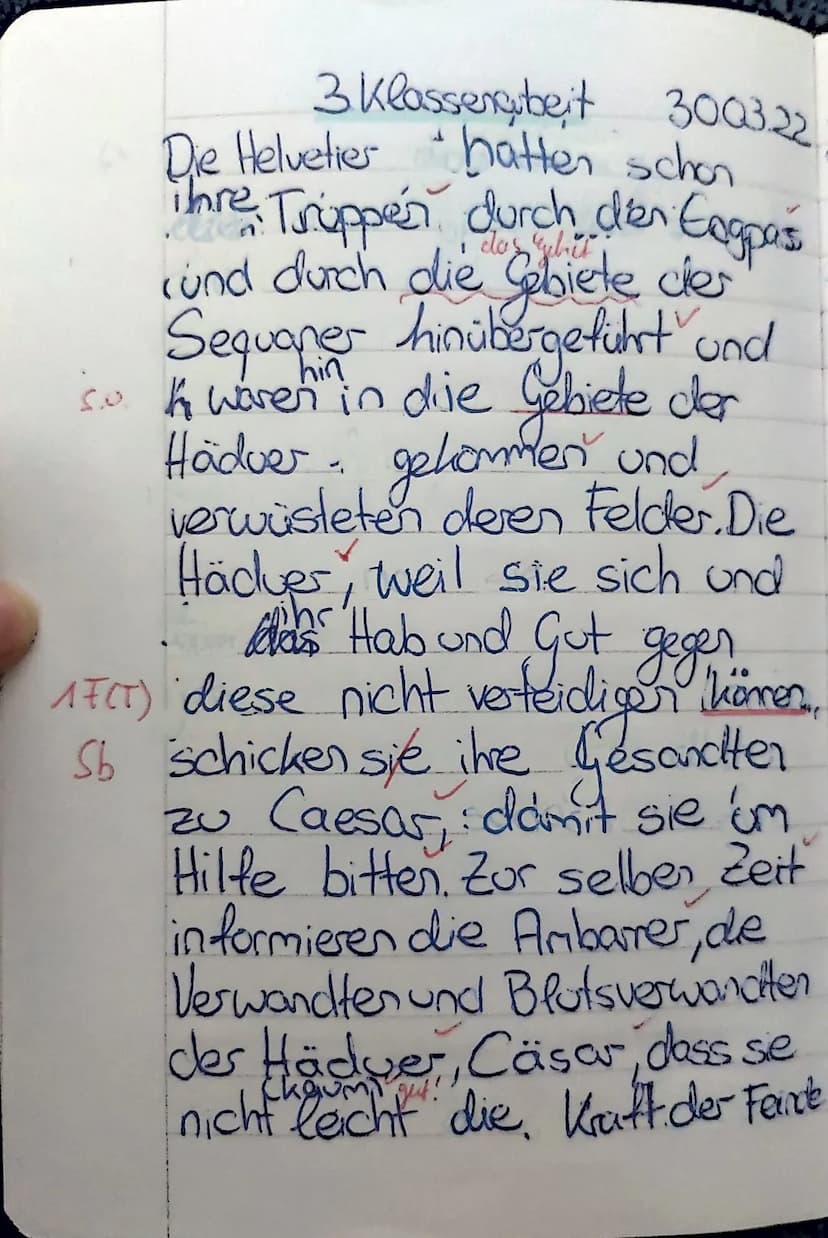 3 Klassenarbeit 300322
Die Helvetier hatten schon
ihre Truppen durch den Engpas
das Gebiet
und durch die Gebiete der
Sequaner hinübergeführt und
hin
s.o. waren in die Gebiete der
Hädver gekommen und
verwüsteten deren Felder. Die
Hädver, weil sie sich und
ihr
das Hab und Gut gegen
1F(T) diese nicht verteidigen können,
Sb schicken sie ihre Gesandten
zu Caesar, damit sie um
Hilfe bitten. Zur selben Zeit
informieren die Ambarrer, die
Verwandten und Blutsverwandten
der Hädver, Cäsar, dass sie
(kaum) gut!
nicht leicht die Kraft der Feinde